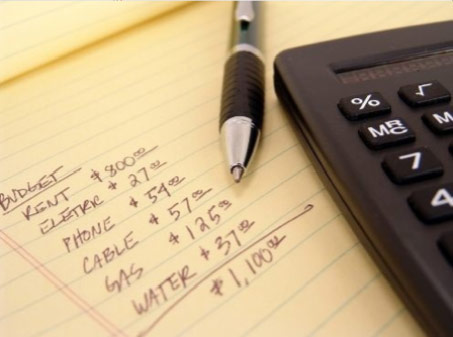 BUDGET
RENT $800.00
ELETRR $27.00
PHONE $54.00
CABLE $57.00
GAS $125.00
WATER $37.00
$1,100.00
%
√
MRC
M
7
4